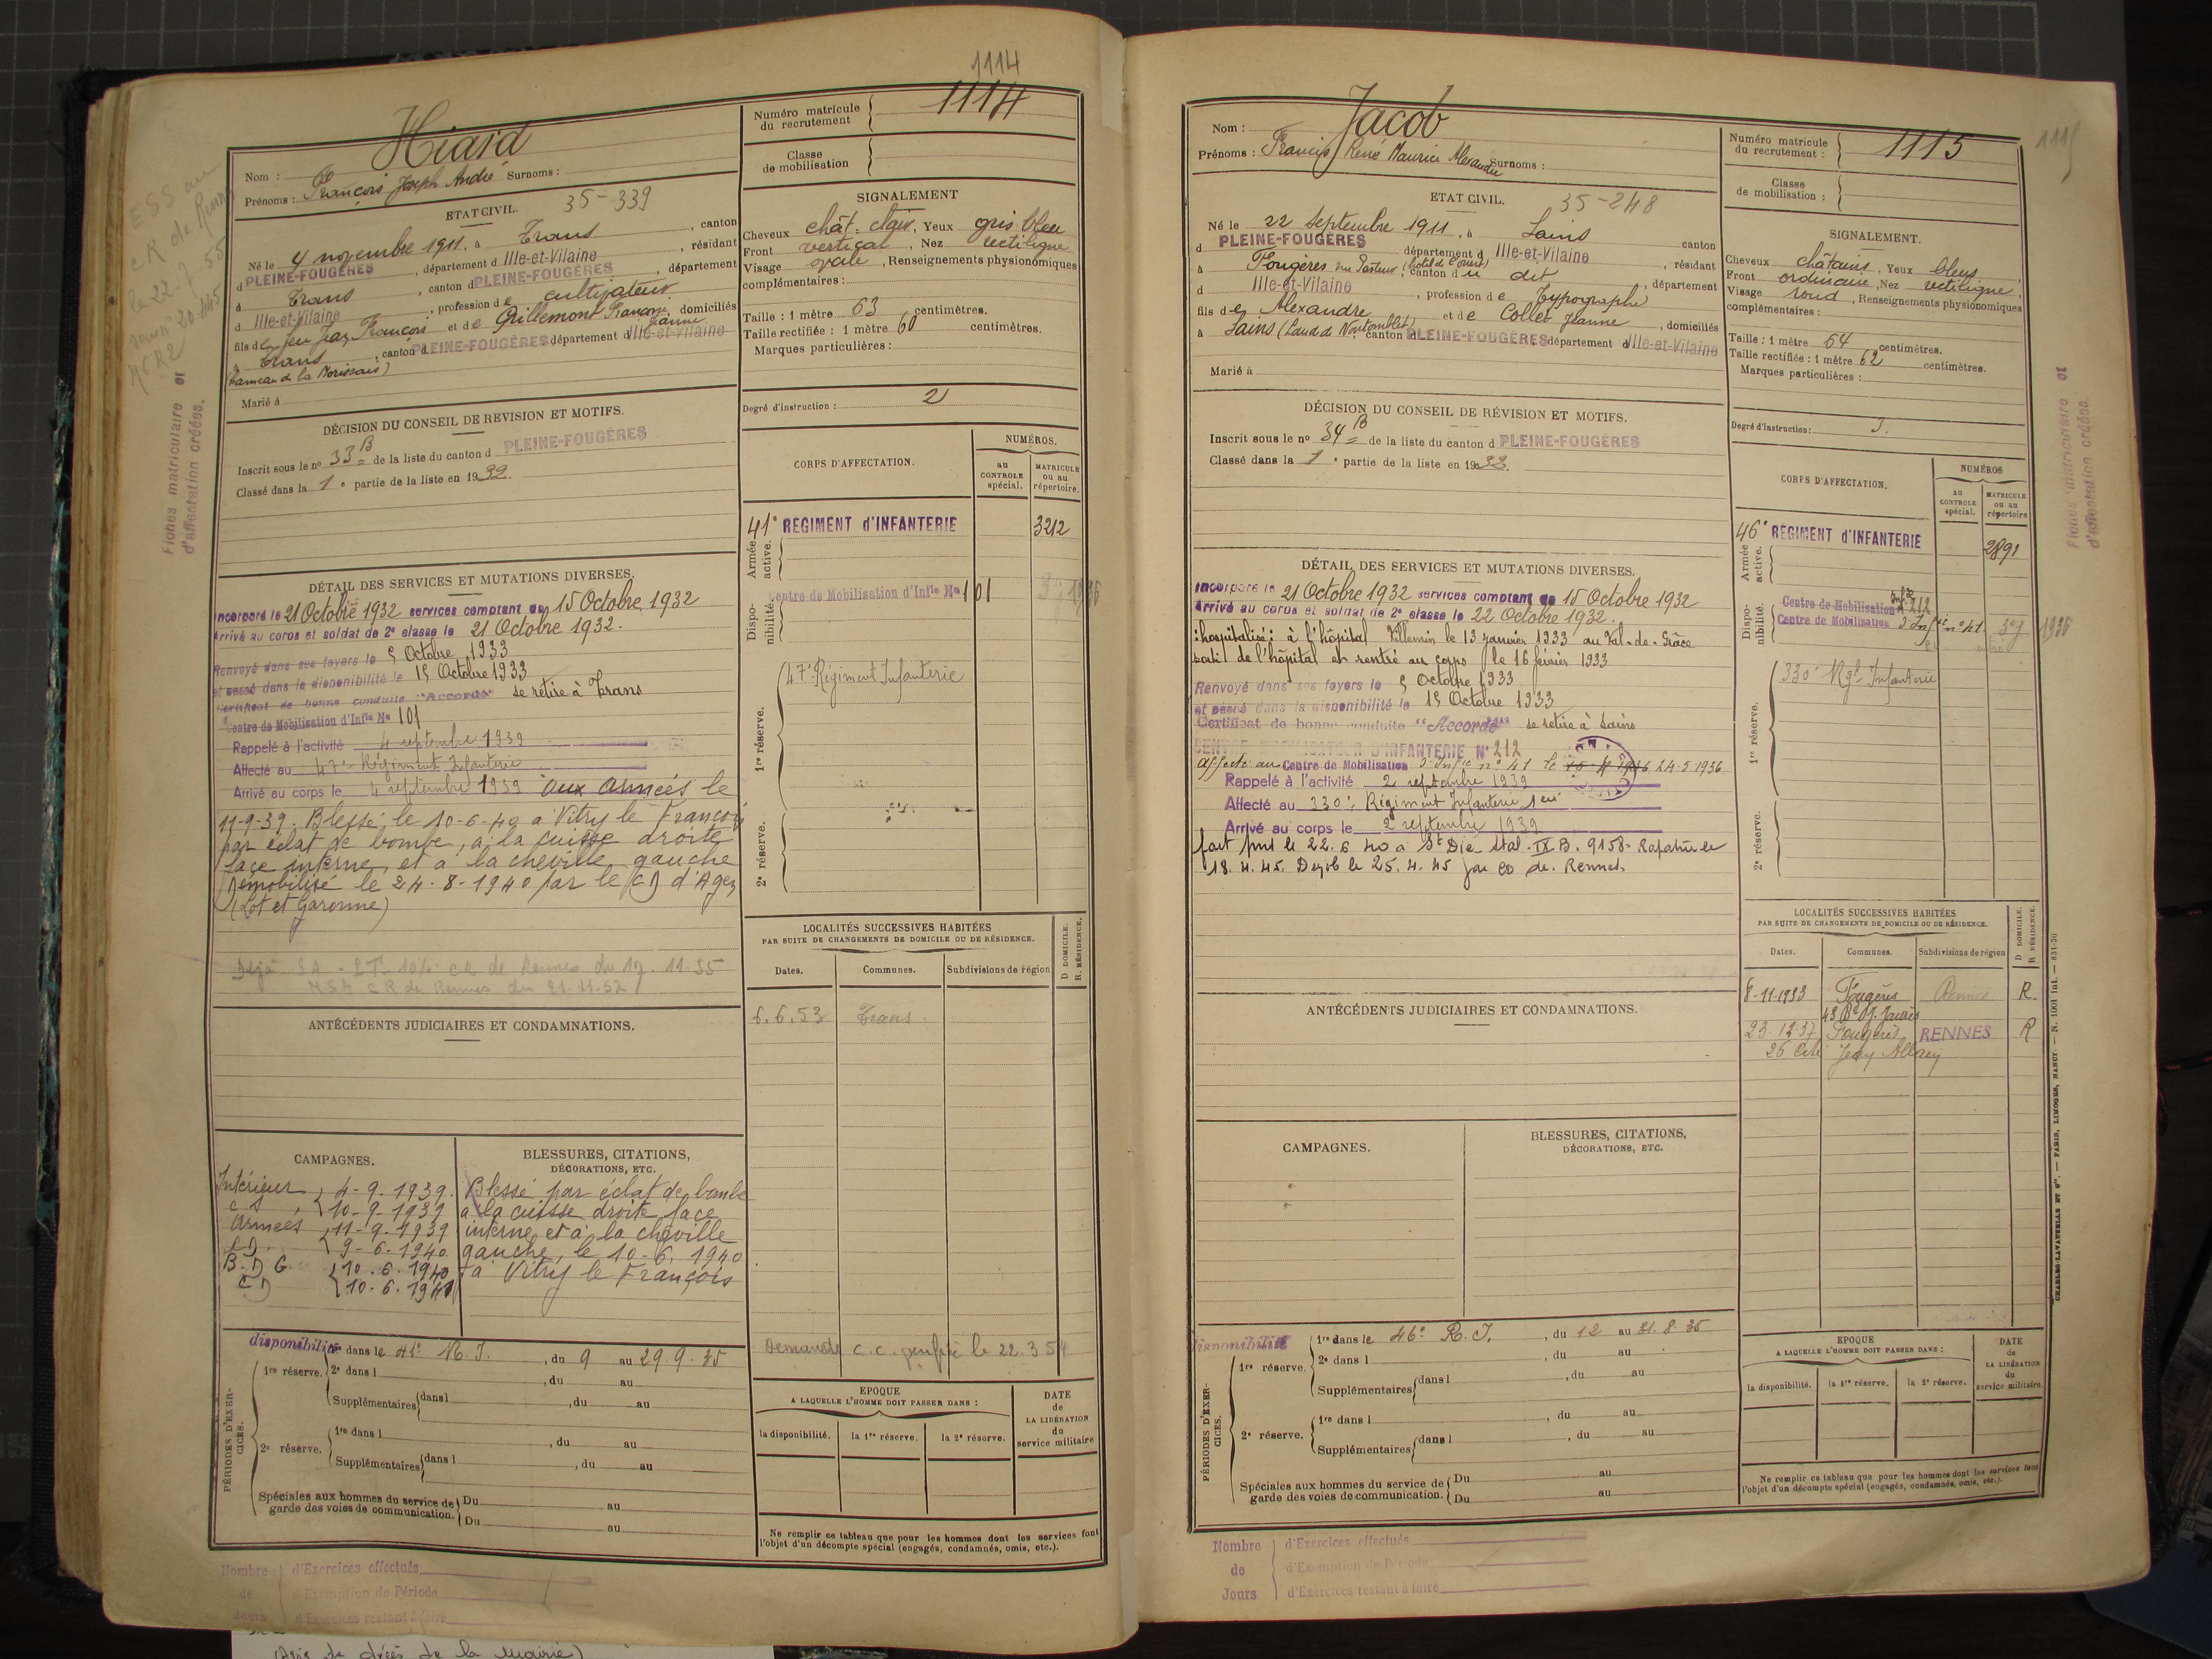 1114
Nom : Hiard
Prénoms : François Joseph André Surnoms :
Numéro matricule du recrutement 1114
Classe de mobilisation
ETAT CIVIL. 35-339
Né le 4 novembre 1911, à Trans, canton
d PLEINE-FOUGÈRES, département d Ille-et-Vilaine, résidant
à Trans, canton d PLEINE-FOUGÈRES, département
d Ille-et-Vilaine, profession de cultivateur
fils de feu Jean François et de Grillemont Françoise Jeanne, domiciliés
à Trans, canton d PLEINE-FOUGÈRES département d Ille-et-Vilaine
(hameau de la Morissais)
Marié à
SIGNALEMENT
Cheveux chât. clair, Yeux gris bleu
Front vertical, Nez rectiligne
Visage ovale, Renseignements physionomiques
complémentaires :
Taille : 1 mètre 63 centimètres.
Taille rectifiée : 1 mètre 60 centimètres.
Marques particulières :
Degré d'instruction : 2
DÉCISION DU CONSEIL DE REVISION ET MOTIFS.
Inscrit sous le no 33 B de la liste du canton d PLEINE-FOUGÈRES
Classé dans la 1e partie de la liste en 1932.
CORPS D'AFFECTATION.
NUMÉROS.
au CONTROLE spécial.
MATRICULE ou au répertoire.
Armée active.
41e REGIMENT d'INFANTERIE 3212
Disponibilité.
Centre de Mobilisation d'Infie No 101
1re réserve.
47e Régiment Infanterie
2e réserve.
Fiches matriculaire et
d'affectation créées.
DÉTAIL DES SERVICES ET MUTATIONS DIVERSES.
Incorporé le 21 Octobre 1932 services comptant du 15 Octobre 1932
Arrivé au corps et soldat de 2e classe le 21 Octobre 1932.
Renvoyé dans ses foyers le 5 Octobre 1933
et passé dans la disponibilité le 15 Octobre 1933
Certificat de bonne conduite "Accordé" se retire à Trans
Centre de Mobilisation d'Infie No 101
Rappelé à l'activité 4 septembre 1939
Affecté au 47e Régiment Infanterie
Arrivé au corps le 4 septembre 1939 aux armées le
11-9-39. Blessé le 10-6-40 à Vitry le François
par éclat de bombe, à la cuisse droite
face interne, et à la cheville gauche
Démobilisé le 24-8-1940 par le CD d'Agen
(Lot et Garonne)
ANTÉCÉDENTS JUDICIAIRES ET CONDAMNATIONS.
LOCALITÉS SUCCESSIVES HABITÉES
PAR SUITE DE CHANGEMENTS DE DOMICILE OU DE RÉSIDENCE.
Dates. Communes. Subdivisions de région
D DOMICILE. R. RÉSIDENCE.
6.6.53 Trans.
CAMPAGNES.
Intérieur 4-9-1939.
10-9-1939
Armées 11-9-1939
9-6-1940
10.6.1940
10.6.1941
BLESSURES, CITATIONS,
DÉCORATIONS, ETC.
Blessé par éclat de bombe
à la cuisse droite face
interne, et à la cheville
gauche, le 10-6-1940
à Vitry le François
PÉRIODES D'EXERCICES.
disponibilité
1re réserve. 1re dans le 41e R.I., du 9 au 29.9.35
2e dans l , du au
Supplémentaires dans l , du au
2e réserve. 1re dans l , du au
Supplémentaires dans l , du au
Spéciales aux hommes du service de garde des voies de communication. Du au
Du au
EPOQUE
A LAQUELLE L'HOMME DOIT PASSER DANS :
la disponibilité. la 1re réserve. la 2e réserve.
DATE de LA LIBÉRATION du service militaire
Ne remplir ce tableau que pour les hommes dont les services font
l'objet d'un décompte spécial (engagés, condamnés, omis, etc.).
Nombre de Jours
d'Exercices effectués
d'Exemption de Période
d'Exercices restant à faire
(Avis de décès de la Mairie)
1115
Nom : Jacob
Prénoms : Francis René Maurice Alexandre Surnoms :
Numéro matricule du recrutement : 1115
Classe de mobilisation :
ETAT CIVIL. 35-248
Né le 22 Septembre 1911, à Sains canton
d PLEINE-FOUGÈRES département d Ille-et-Vilaine, résidant
à Fougères rue Pasteur (hôtel de l'ouest), canton du dit, département
d Ille-et-Vilaine, profession de Typographe
fils de Alexandre et de Collet Jeanne, domiciliés
à Sains, canton d PLEINE-FOUGÈRES département d Ille-et-Vilaine
Marié à
SIGNALEMENT.
Cheveux châtains, Yeux bleus
Front ordinaire, Nez rectiligne,
Visage rond, Renseignements physionomiques
complémentaires :
Taille : 1 mètre 64 centimètres.
Taille rectifiée : 1 mètre 62 centimètres.
Marques particulières :
Degré d'instruction : 3.
DÉCISION DU CONSEIL DE RÉVISION ET MOTIFS.
Inscrit sous le no 34 B de la liste du canton d PLEINE-FOUGÈRES
Classé dans la 1e partie de la liste en 1932.
CORPS D'AFFECTATION.
NUMÉROS
au CONTROLE spécial.
MATRICULE ou au répertoire
Armée active.
46e REGIMENT d'INFANTERIE 2891
Disponibilité.
Centre de Mobilisation Infie 212
Centre de Mobilisation d'Infie no 41
1re réserve.
330e Rgt Infanterie
2e réserve.
Fiches matriculaire et
d'affectation créées
DÉTAIL DES SERVICES ET MUTATIONS DIVERSES.
Incorporé le 21 Octobre 1932 services comptant du 15 Octobre 1932
Arrivé au corps et soldat de 2e classe le 22 Octobre 1932.
hospitalisé à l'hôpital Villemin le 13 janvier 1933 au Val-de-Grâce
sorti de l'hôpital et rentré au corps le 16 février 1933
Renvoyé dans ses foyers le 5 Octobre 1933
et passé dans la disponibilité le 15 Octobre 1933
Certificat de bonne conduite "Accordé" se retire à Sains
CENTRE MOBILISATEUR D'INFANTERIE No 212
Affecté au Centre de Mobilisation d'Infie no 41 le 24-5-1936
Rappelé à l'activité 2 septembre 1939
Affecté au 330e Régiment Infanterie
Arrivé au corps le 2 septembre 1939
fait pris le 22.6 40 à St Dié Stal. IX B. 9158- Rapatrié le
18.4.45. Demob le 25.4.45 par CD de Rennes
ANTÉCÉDENTS JUDICIAIRES ET CONDAMNATIONS.
LOCALITÉS SUCCESSIVES HABITÉES
PAR SUITE DE CHANGEMENTS DE DOMICILE OU DE RÉSIDENCE.
Dates. Communes. Subdivisions de région
D DOMICILE. R RÉSIDENCE.
8-11-1933 Fougères Rennes R.
43 Bd J. Jaurès
23-12-37 Fougères RENNES R
CAMPAGNES.
BLESSURES, CITATIONS,
DÉCORATIONS, ETC.
PÉRIODES D'EXERCICES.
disponibilité
1re réserve. 1re dans le 46e R.I., du 12 au 31.8.35
2e dans l , du au
Supplémentaires dans l , du au
2e réserve. 1re dans l , du au
Supplémentaires dans l , du au
Spéciales aux hommes du service de garde des voies de communication. Du au
Du au
EPOQUE
A LAQUELLE L'HOMME DOIT PASSER DANS :
la disponibilité. la 1re réserve. la 2e réserve.
DATE de LA LIBÉRATION du service militaire.
Ne remplir ce tableau que pour les hommes dont les services font
l'objet d'un décompte spécial (engagés, condamnés, omis, etc.).
Nombre de Jours
d'Exercices effectués
d'Exemption de Période
d'Exercices restant à faire
CHARLES-LAVAUZELLE ET Cie. — PARIS, LIMOGES, NANCY. — N. 1001 int. — 831-30